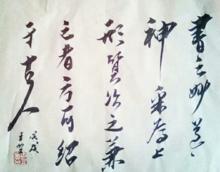 書之妙道
神采為上
形質次之兼
之者方可紹
于古人
戊戌